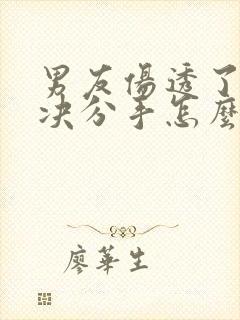 男友傷透了
决分手怎麼
廖華生